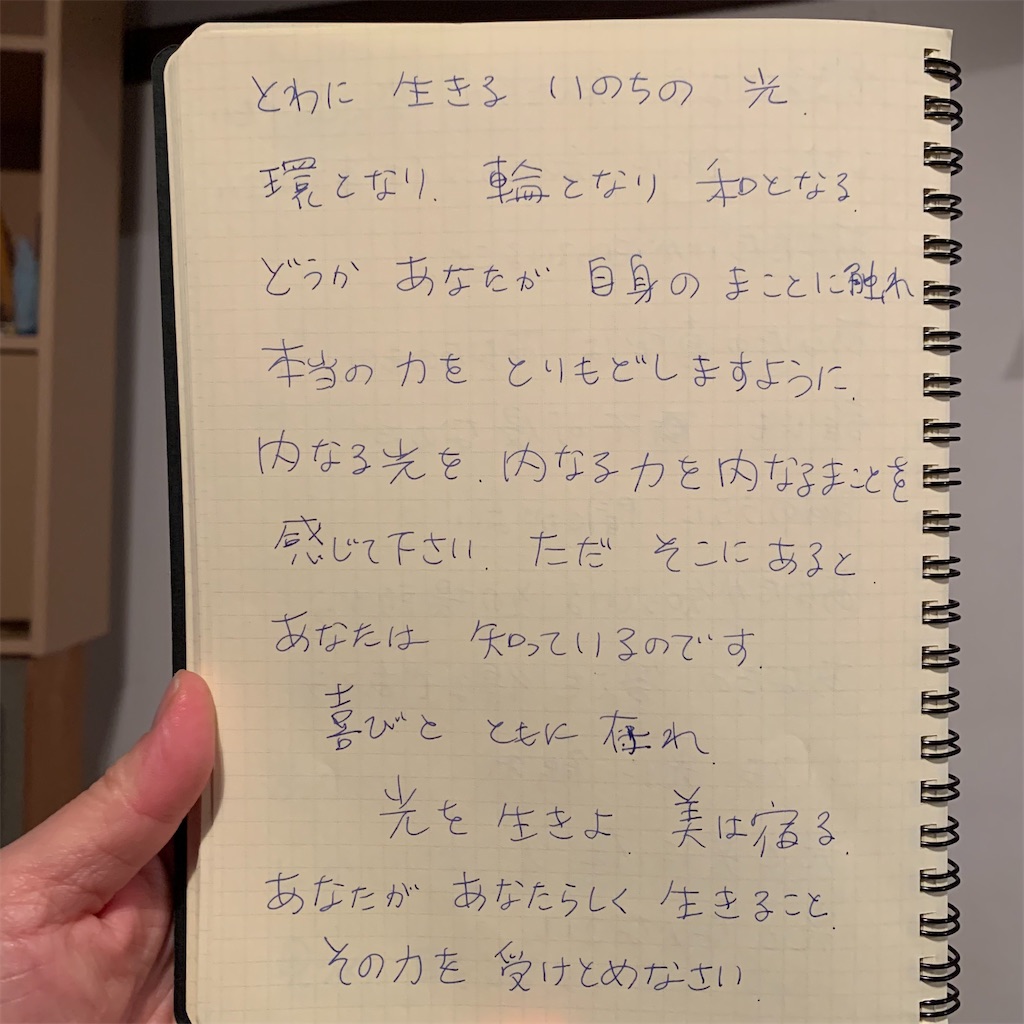 とわに 生きる いのちの 光.
環となり. 輪となり 和となる.
どうか あなたが 自身の まことに触れ
本当の 力を とりもどしますように.
内なる光を. 内なる力を 内なるまことを
感じて下さい. ただ そこに あると.
あなたは 知っているのです.
喜びと ともに 在れ.
光を 生きよ. 美は宿る.
あなたが あなたらしく 生きること.
その力を 受けとめなさい.